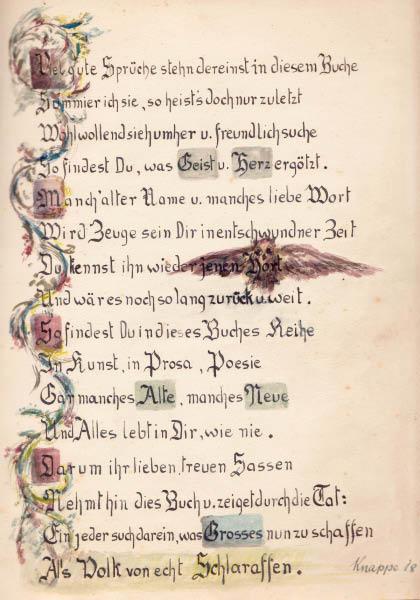 Viel gute Sprüche stehn dereinst in diesem Buche
Summier ich sie, so heist's doch nur zuletzt
Wohlwollend sieh umher u. freundlich suche
So findest Du, was Geist u. Herz ergötzt.
Manch' alter Name u. manches liebe Wort
Wird Zeuge sein Dir in entschwundner Zeit
Du kennst ihn wieder jenen Hort
Und wär es noch so lang zurück u. weit.
So findest Du in dieses Buches Reihe
In Kunst, in Prosa, Poesie
Gar manches Alte, manches Neue
Und Alles lebt in Dir, wie nie.
Darum ihr lieben, treuen Sassen
Nehmt hin dies Buch u. zeiget durch die Tat:
Ein jeder such darein, was Grosses nun zu schaffen
Als Volk von echt Schlaraffen.
Knappe 18